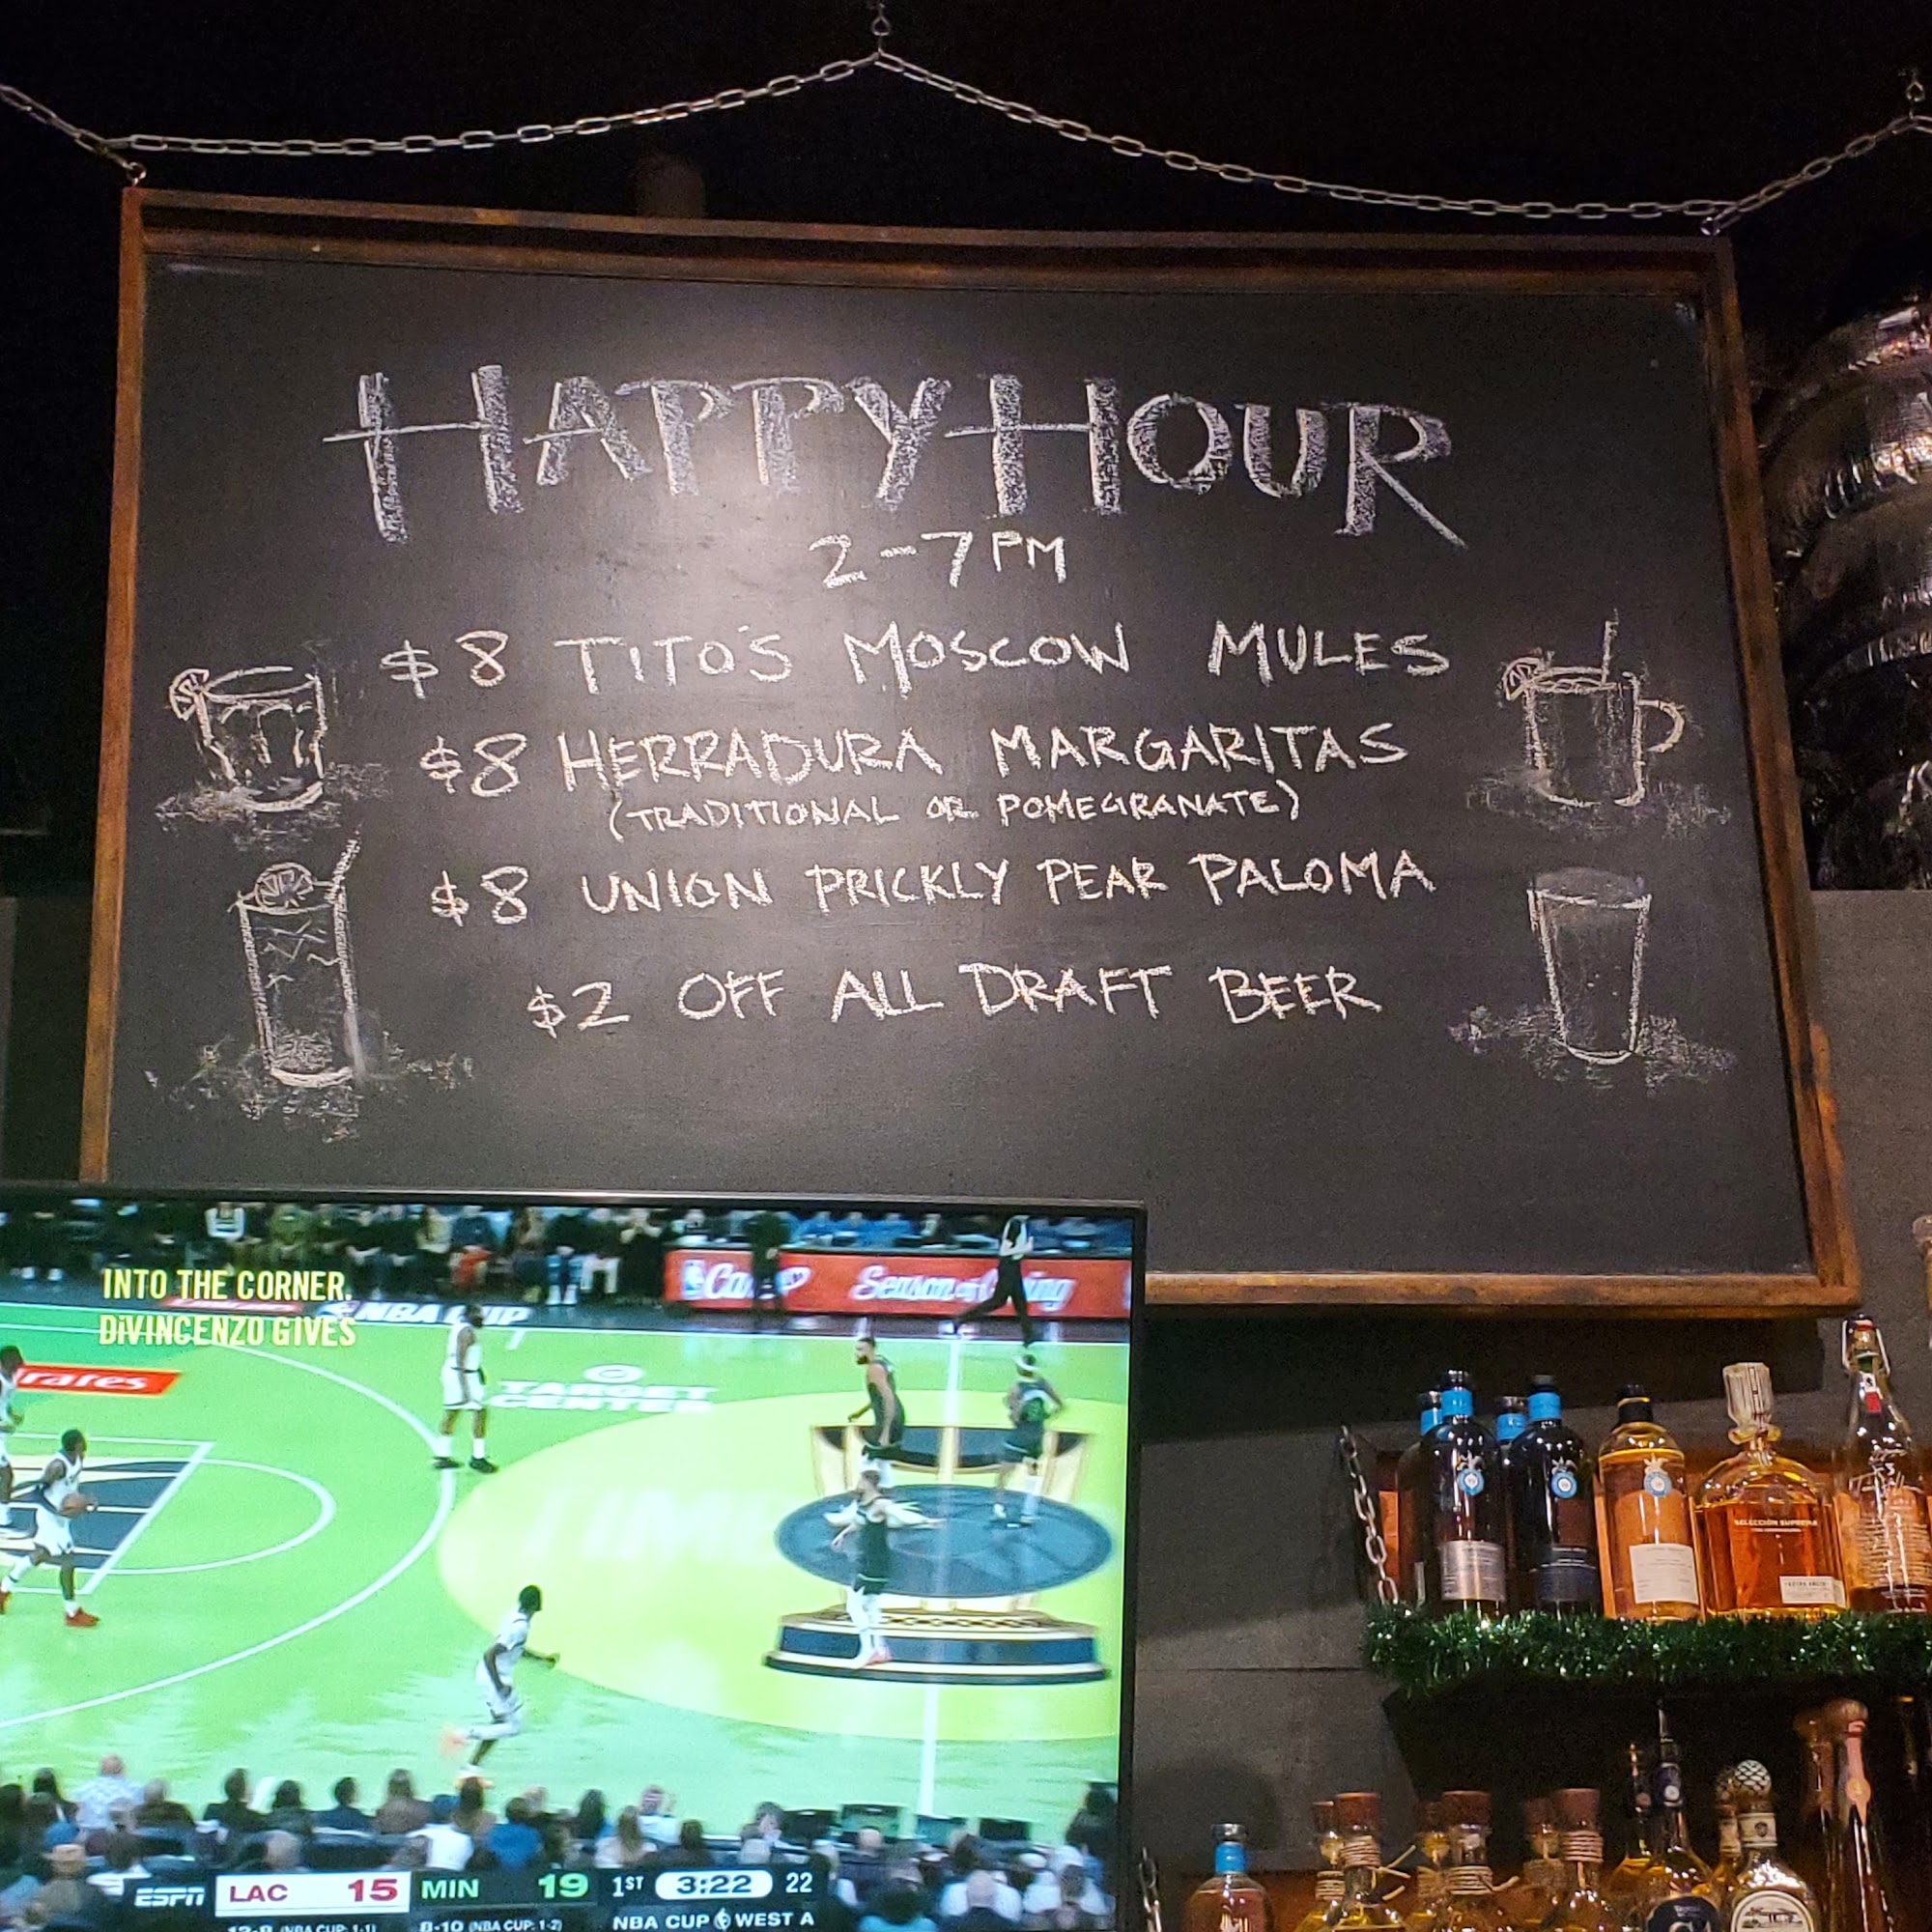 HAPPY HOUR
2-7PM
$8 TITO'S MOSCOW MULES
$8 HERRADURA MARGARITAS
(TRADITIONAL OR POMEGRANATE)
$8 UNION PRICKLY PEAR PALOMA
$2 OFF ALL DRAFT BEER
INTO THE CORNER.
DiVINCENZO GIVES
NBA CUP
Season of Giving
TARGET
CENTER
SELECCIÓN SUPREMA
ESPN LAC 15 MIN 19 1ST 3:22 22
(NBA CUP: 1-1) 8-10 (NBA CUP: 1-2) NBA CUP WEST A